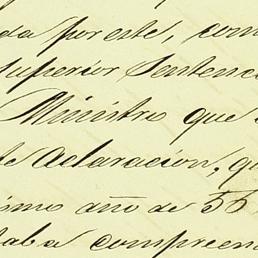 da por este, com
Superior Sentenc
Ministro que
de Aclaracion, qu
simo año de 55
taba compren